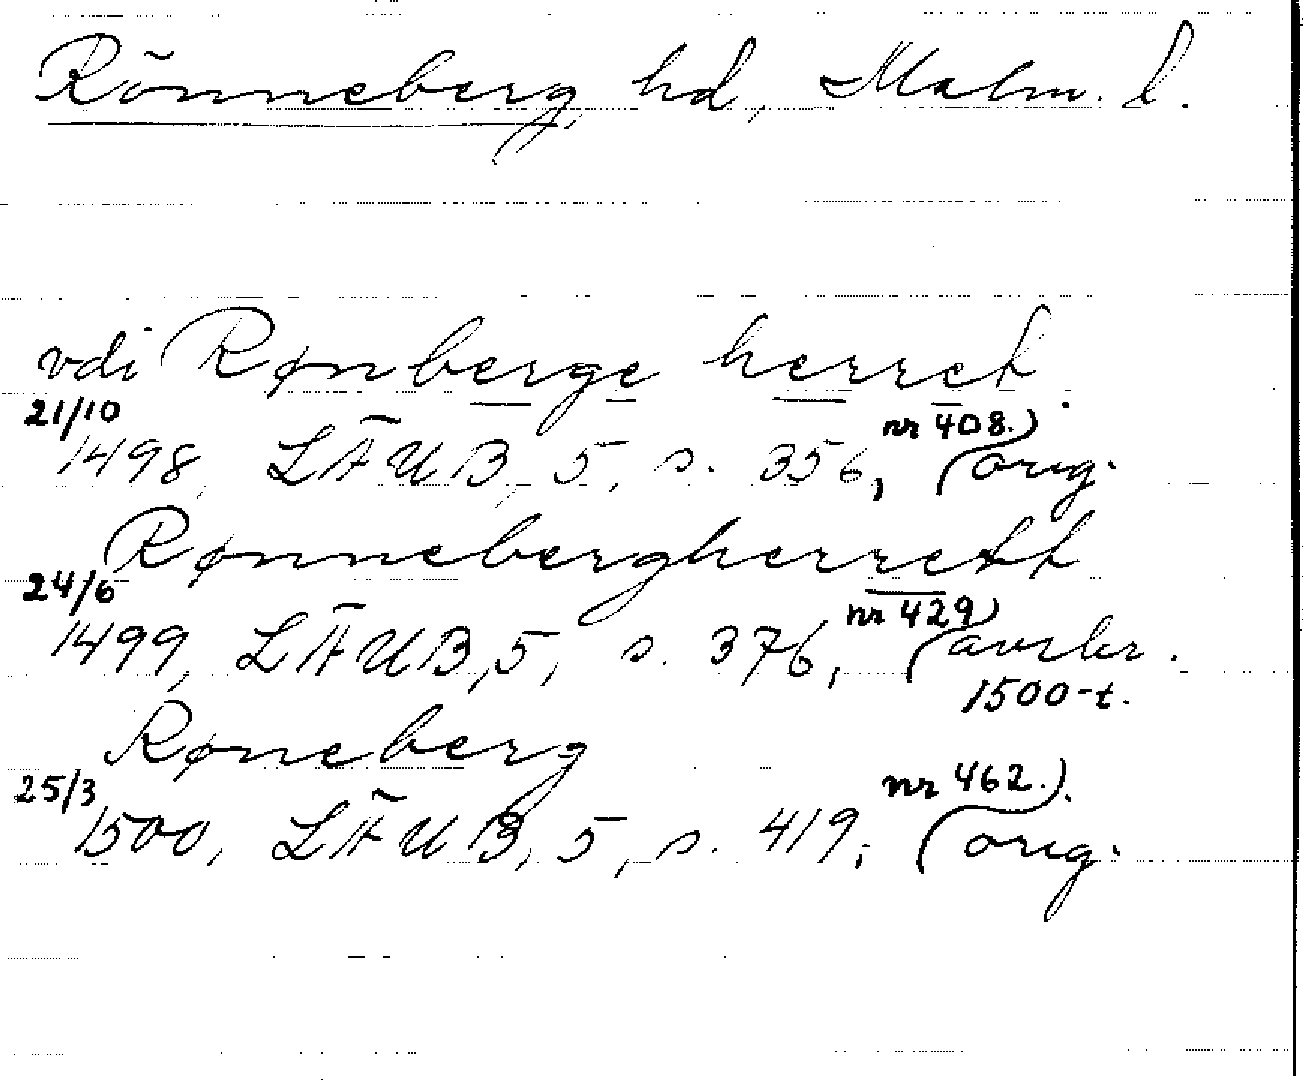 Rönneberg, hd, Malm. l.
vdi Rønberge herret.
21/10 1498, LÄUB, 5, s. 356, nr 408.) (orig.
Rønnebergherrett
24/6 1499, LÄUB, 5, s. 376, nr 429) (avskr.
1500-t.
Røneberg
25/3 1500, LÄUB, 5, s. 419, nr 462.). (orig.